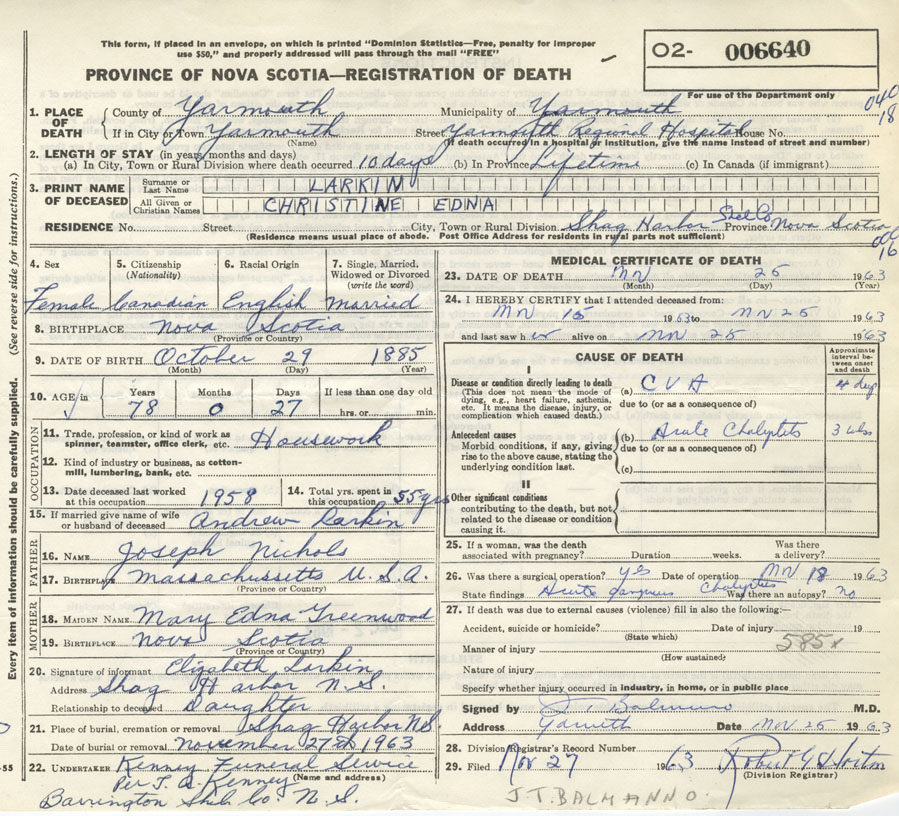 This form, if placed in an envelope, on which is printed "Dominion Statistics—Free, penalty for improper
use $50," and properly addressed will pass through the mail "FREE"
O2- 006640
PROVINCE OF NOVA SCOTIA—REGISTRATION OF DEATH
For use of the Department only
040
18
1. PLACE OF DEATH County of Yarmouth Municipality of Yarmouth
If in City or Town Yarmouth (Name) Street Yarmouth Regional Hospital House No.
(If death occurred in a hospital or institution, give the name instead of street and number)
2. LENGTH OF STAY (in years/months and days)
(a) In City, Town or Rural Division where death occurred 10 days (b) In Province Lifetime (c) In Canada (if immigrant)
3. PRINT NAME OF DECEASED Surname or Last Name LARKIN
All Given or Christian Names CHRISTINE EDNA
RESIDENCE No. Street City, Town or Rural Division Shag Harbor Shel Co Province Nova Scotia
(Residence means usual place of abode. Post Office Address for residents in rural parts not sufficient)
16
(See reverse side for instructions.)
Every item of information should be carefully supplied.
4. Sex Female
5. Citizenship (Nationality) Canadian
6. Racial Origin English
7. Single, Married, Widowed or Divorced (write the word) Married
8. BIRTHPLACE Nova Scotia
(Province or Country)
9. DATE OF BIRTH October 29 1885
(Month) (Day) (Year)
10. AGE in Years Months Days If less than one day old
78 0 27 hrs. or min.
OCCUPATION
11. Trade, profession, or kind of work as spinner, teamster, office clerk, etc. Housework
12. Kind of industry or business, as cotton-mill, lumbering, bank, etc.
13. Date deceased last worked at this occupation 1958
14. Total yrs. spent in this occupation 55 yrs
15. If married give name of wife or husband of deceased Andrew Larkin
FATHER
16. NAME Joseph Nichols
17. BIRTHPLACE Massachussetts U.S.A.
(Province or Country)
MOTHER
18. MAIDEN NAME Mary Edna Greenwood
19. BIRTHPLACE Nova Scotia
(Province or Country)
20. Signature of informant Elizabeth Larkin
Address Shag Harbor N.S.
Relationship to deceased Daughter
21. Place of burial, cremation or removal Shag Harbor NS
Date of burial or removal November 27th 1963
22. UNDERTAKER Kenney Funeral Service
(Name and address)
Per J. A. Kenney
Barrington Shel. Co. N.S.
-55
MEDICAL CERTIFICATE OF DEATH
23. DATE OF DEATH 25 1963
(Month) (Day) (Year)
24. I HEREBY CERTIFY that I attended deceased from:
15 1963 to 25 1963
and last saw her alive on 25 1963
CAUSE OF DEATH
Approximate interval between onset and death
I
Disease or condition directly leading to death
(This does not mean the mode of dying, e.g., heart failure, asthenia, etc. It means the disease, injury, or complication which caused death.)
(a) CVA 4 days
due to (or as a consequence of)
Antecedent causes
Morbid conditions, if any, giving rise to the above cause, stating the underlying condition last.
(b) Acute 3 wks
due to (or as a consequence of)
(c)
II
Other significant conditions
contributing to the death, but not related to the disease or condition causing it.
25. If a woman, was the death associated with pregnancy? Duration weeks. Was there a delivery?
26. Was there a surgical operation? yes Date of operation 18 1963
State findings Acute Was there an autopsy? no
27. If death was due to external causes (violence) fill in also the following:—
Accident, suicide or homicide? Date of injury 19
(State which)
585x
Manner of injury
(How sustained)
Nature of injury
Specify whether injury occurred in industry, in home, or in public place
Signed by J T Balmanno M.D.
Address Yarmouth Date Nov 25 1963
28. Division Registrar's Record Number
29. Filed Nov 27 1963
(Division Registrar)
J.T. BALMANNO.